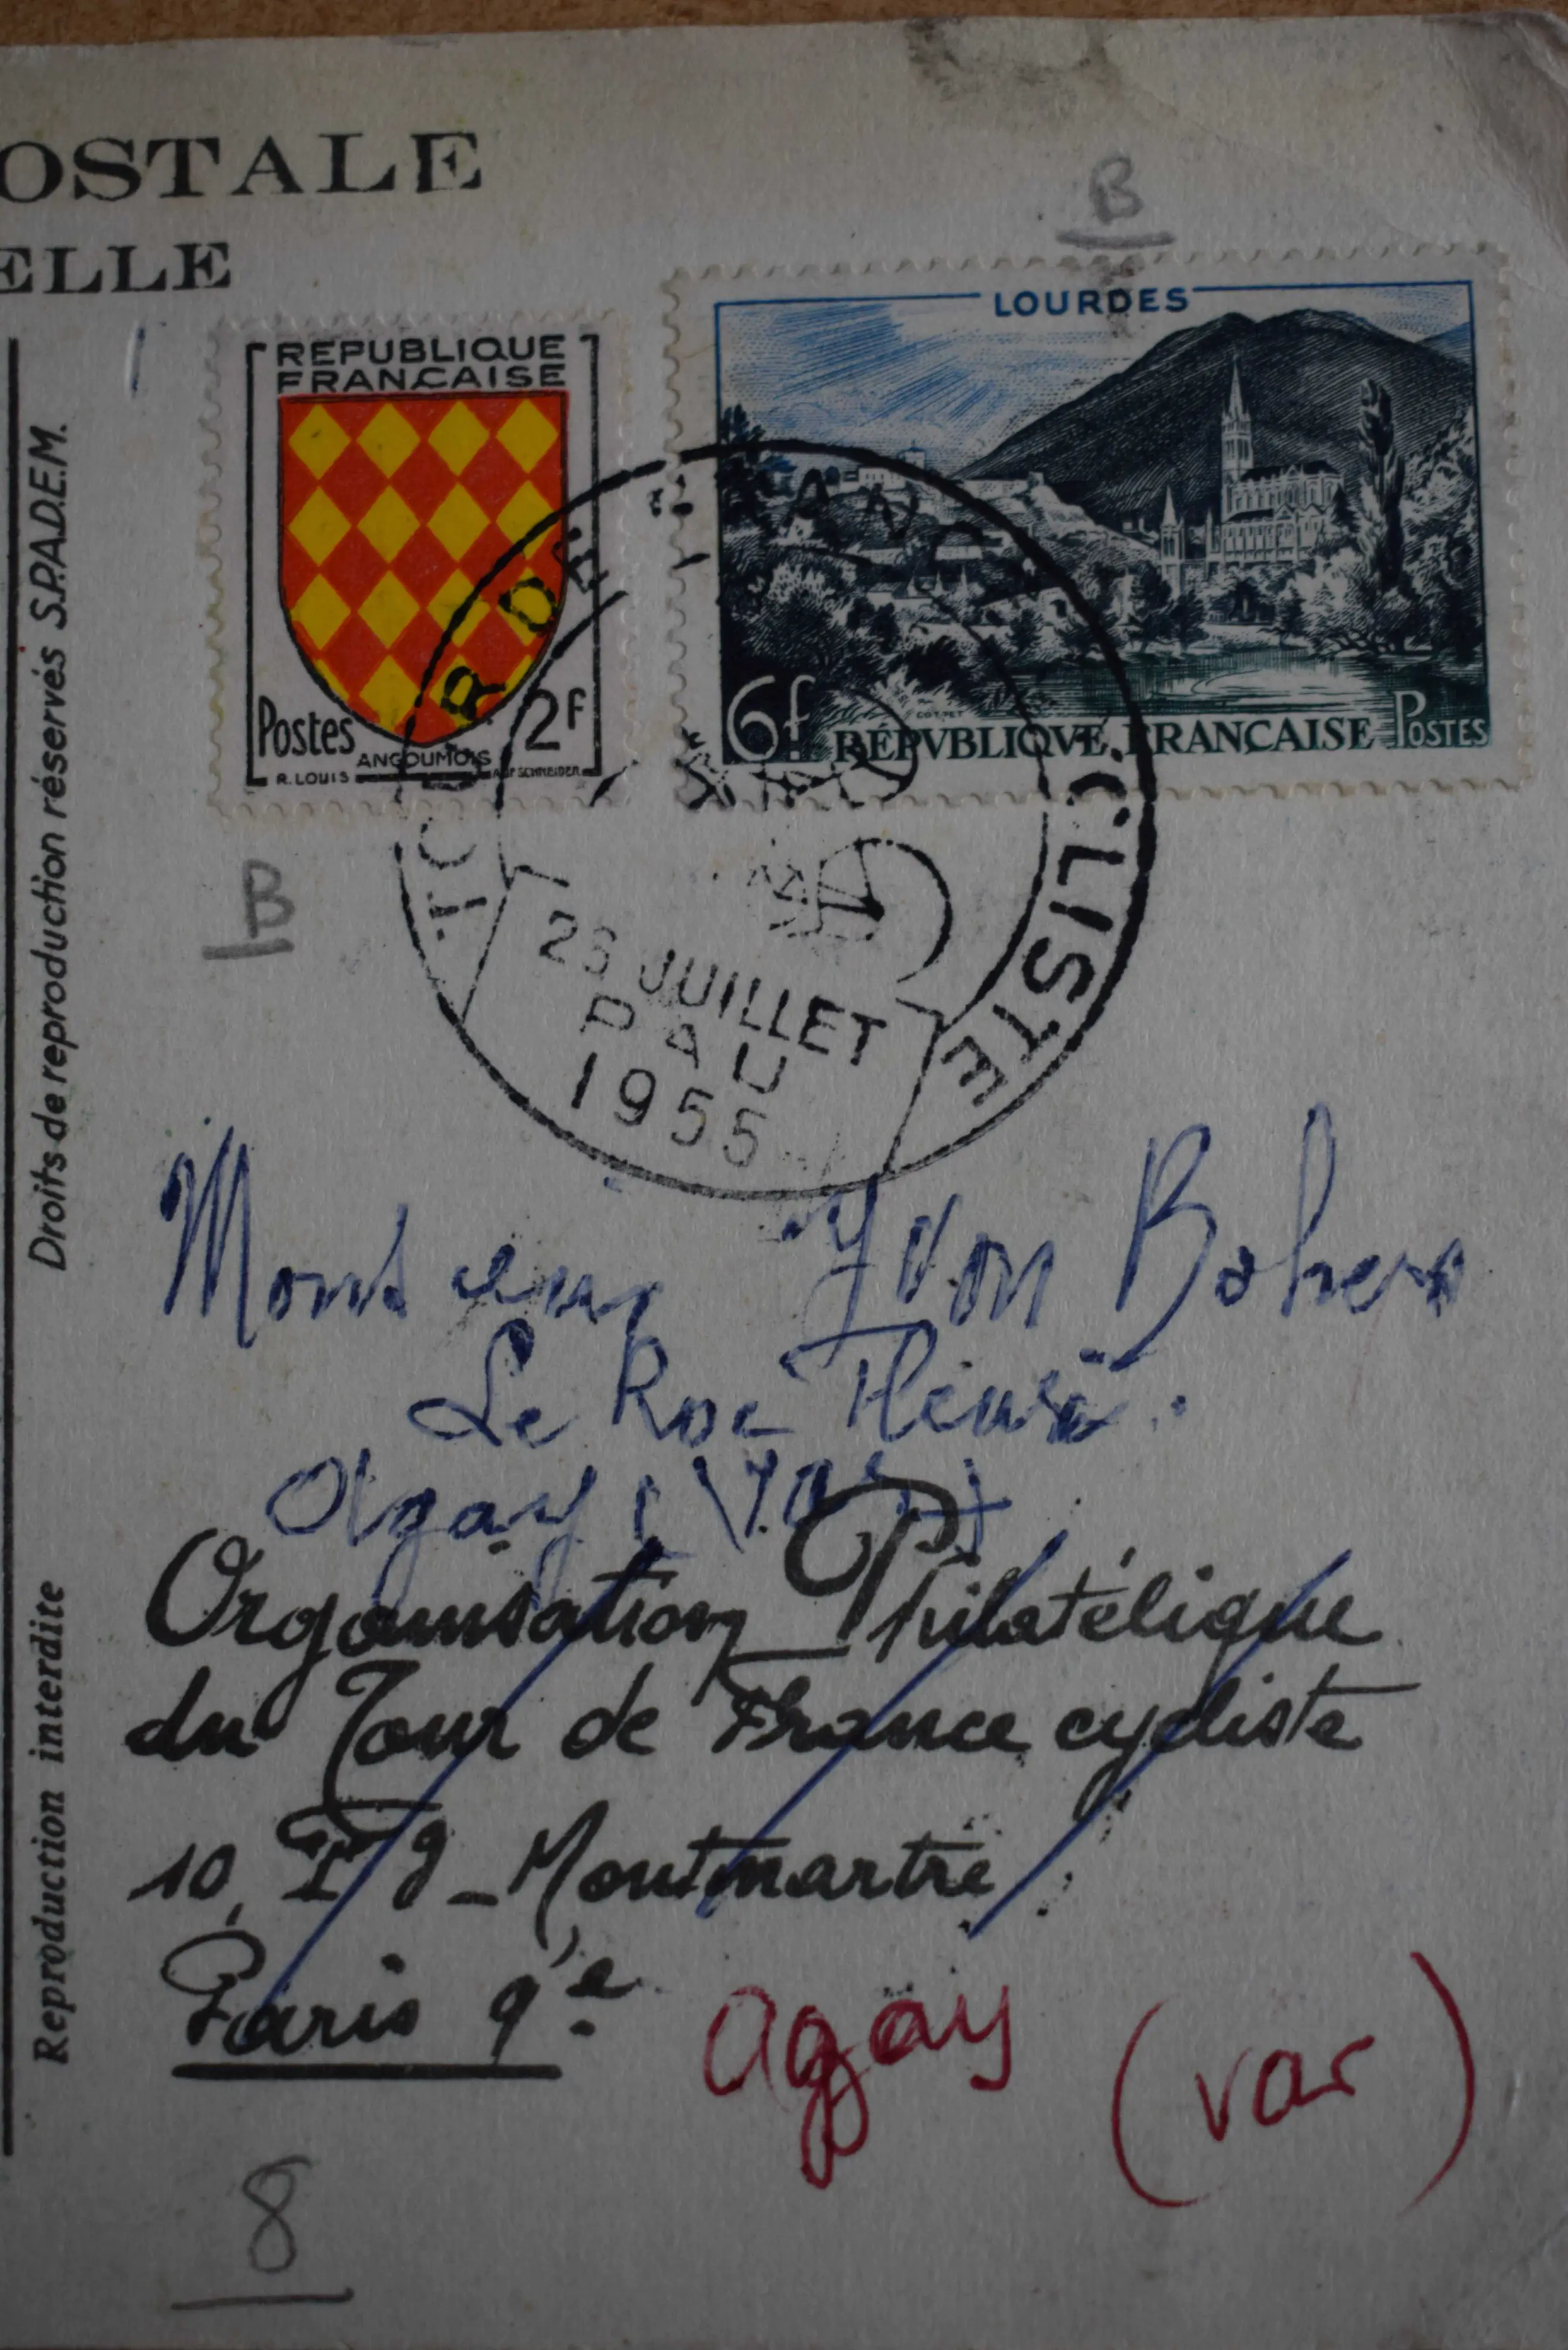 OSTALE
ELLE
B
REPUBLIQUE
FRANCAISE
Postes 2F
ANGOUMOIS
R. LOUIS SCHNEIDER
LOURDES
6f RÉPVBLIQVE FRANÇAISE POSTES
TOUR DE FRANCE CYCLISTE
JUILLET
PAU
1955
B
Droits de reproduction réservés S.P.A.D.E.M.
Reproduction interdite
Monsieur Yvon
Le Roc Fleuri.
Agay (Var)
Organisation Philatélique
du Tour de France cycliste
10, Fg-Montmartre
Paris 9e
Agay (var)
8